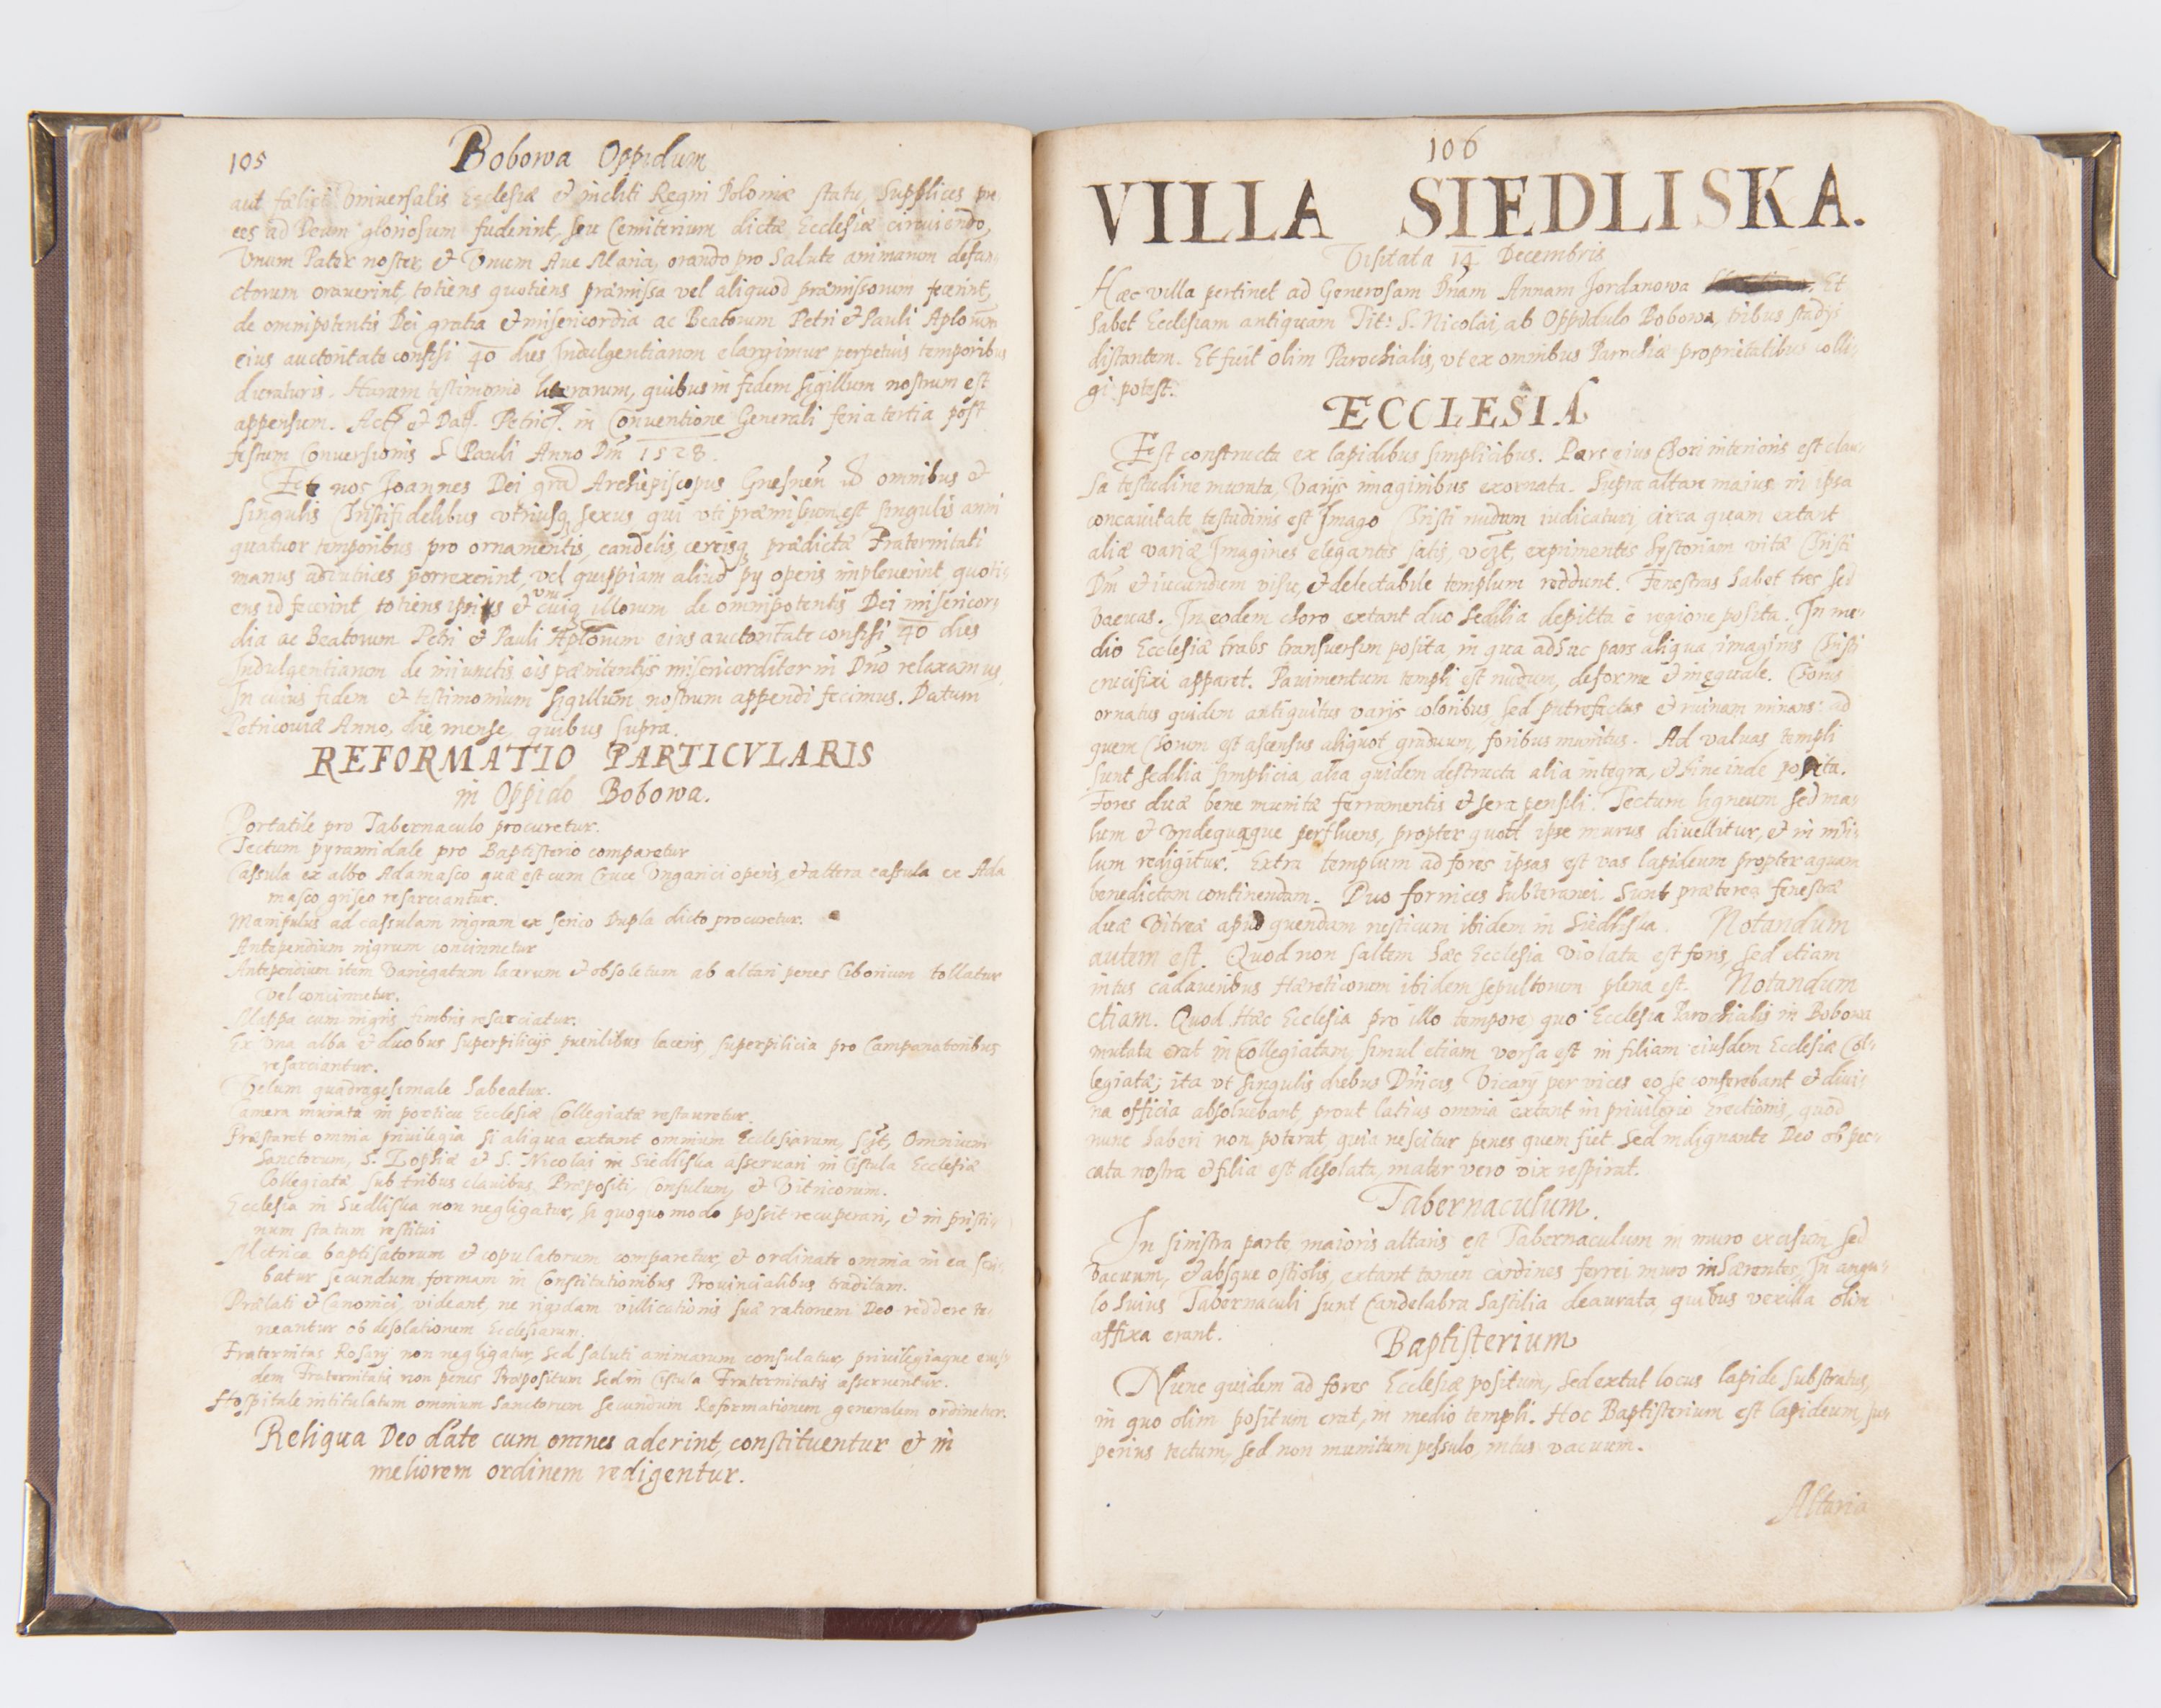 105
Bobowa Oppidum
aut fælici Vniuersalis Ecclesiæ et incliti Regni Poloniæ statu, Supplices pre
ces ad Deum gloriosum fuderint, seu Cemiterium dictæ Ecclesiæ circuiendo,
Vnum Pater noster, et Vnum Aue Maria, orando pro Salute animarum defun-
ctorum orauerint, totiens quotiens præmissa vel aliquod præmissorum fecerint,
de omnipotentis Dei gratia et misericordia ac Beatorum Petri et Pauli Aplorum
eius auctoritate confisi 40 dies Indulgentiarum elargimur perpetuis temporibus
duraturis. Harum testimonio literarum, quibus in fidem sigillum nostrum est
appensum. Act. et Dat. Petric. in Conuentione Generali feria tertia post
festum Conuersionis S Pauli Anno Dm 1528.
Et nos Joannes Dei gra Archiepiscopus Gnesnen omnibus et
singulis Christifidelibus vtriusq sexus, qui vti præmissum est singulis anni
quatuor temporibus pro ornamentis, candelis, cereisq prædictæ Fraternitati
manus adiutrices porrexerint, vel quippiam aliud pij operis impleuerint, quoti-
ens id fecerint, totiens ipsius et cuiq vni illorum de omnipotentis Dei misericor-
dia ac Beatorum Petri et Pauli Aplorum eius auctoritate confisi 40 dies
Indulgentiarum de iniunctis eis pænitentijs misericorditer in Dno relaxamus,
In cuius fidem et testimonium sigillum nostrum appendi fecimus. Datum
Petricouiæ Anno, die mense, quibus supra.
REFORMATIO PARTICVLARIS
in Oppido Bobowa.
Portatile pro Tabernaculo procuretur.
Tectum pyramidale pro Baptisterio comparetur
Cassula ex albo Adamasco quæ est cum Cruce Vngarici operis, et altera cassula ex Ada
masco griseo resarciantur.
Manipulus ad cassulam nigram ex serico Dupla dicto procuretur.
Antependium nigrum concinnetur
Antependium item Variegatum lacerum et obsoletum ab altari penes Ciborium tollatur
vel concinnetur.
Mappa cum nigris fimbris resarciatur.
Ex Vna alba et duobus superpilicijs puerilibus laceris, superpilicia pro Campanatoribus
resarciantur.
Velum quadragesimale habeatur.
Camera murata in porticu Ecclesiæ Collegiatæ restauretur.
Præstaret omnia priuilegia si aliqua extant omnium Ecclesiarum, Omnium
Sanctorum, S. Zophiæ et S. Nicolai in Siedliska asseruari in Cistula Ecclesiæ
Collegiatæ sub tribus clauibus Præpositi, Consulum, et Vitricorum.
Ecclesia in Siedliska non negligatur, si quoquo modo possit recuperari, et in pristi-
num statum restitui
Metrica baptisatorum et copulatorum comparetur, et ordinate omnia in ea scri-
batur secundum formam in Constitutionibus Prouincialibus traditam.
Prælati et Canonici, videant, ne rigidam villicationis suæ rationem Deo reddere te-
neantur ob desolationem Ecclesiarum.
Fraternitas Rosarij non negligatur, sed saluti animarum consulatur, priuilegiaque eius-
dem Fraternitatis non penes Præpositum sed in Cistula Fraternitatis asseruentur.
Hospitale intitulatum omnium Sanctorum secundum Reformationem generalem ordinetur.
Reliqua Deo date cum omnes aderint, constituentur et in
meliorem ordinem redigentur.
106
VILLA SIEDLISKA.
Visitata 14 Decembris
Hæc villa pertinet ad Generosam Dnam Annam Jordanowa Et
habet Ecclesiam antiquam Tit: S. Nicolai, ab Oppidulo Bobowa, tribus stadijs
distantem. Et fuit olim Parochialis, vt ex omnibus Parochiæ proprietatibus colli-
gi potest.
ECCLESIA
Est constructa ex lapidibus simplicibus. Pars eius Chori interioris est clau-
sa testudine murata, Varijs imaginibus exornata. Supra altare maius in ipsa
concauitate testudinis est Imago Christi nudum iudicaturi, circa quam extant
aliæ variæ Imagines elegantes satis, vczt, exprimentes hystoriam vitæ Christi
Dm et iucundum visu, et delectabile templum reddunt. Fenestras habet tres sed
vacuas. In eodem choro extant duo sedilia depicta è regione posita. In me-
dio Ecclesiæ trabs transuersim posita, in qua adhuc pars aliqua imaginis Christi
crucifixi apparet. Pauimentum templi est nudum, deforme et inequale. Chorus
ornatus quidem antiquitus varijs coloribus, sed putrefactus et ruinam minans: ad
quem Chorum est ascensus aliquot graduum, foribus munitus. Ad valuas templi
sunt sedilia simplicia, alia quidem destructa alia integra, et hinc inde posita.
Fores duæ bene munitæ ferramentis et sera pensili. Tectum ligneum sed ma-
lum et vndequaque perfluens, propter quod ipse murus diuellitur, et in nihi-
lum redigitur. Extra templum ad fores ipsas est vas lapideum propter aquam
benedictam continendam. Duo fornices subteranei. Sunt præterea fenestræ
duæ Vitreæ apud quendam rusticum ibidem in Siedliska. Notandum
autem est. Quod non saltem hæc Ecclesia Violata est foris, sed etiam
intus cadaueribus Hæreticorum ibidem sepultorum plena est. Notandum
etiam. Quod Hæc Ecclesia pro illo tempore quo Ecclesia Parochialis in Bobowa
mutata erat in Collegiatam, simul etiam versa est in filiam eiusdem Ecclesiæ Col-
legiatæ; ita vt singulis diebus Dnicis, Vicarij per vices eo se conferebant et diui-
na officia absoluebant, prout latius omnia extant in priuilegio Erectionis, quod
nunc haberi non poterat, quia nescitur penes quem siet. Sed indignante Deo ob pec-
cata nostra et filia est desolata, mater vero vix respirat.
Tabernaculum.
In sinistra parte maioris altaris est Tabernaculum in muro excisum, sed
vacuum, et absque ostiolis, extant tamen cardines ferrei muro inhærentes, In angu-
lo huius Tabernaculi sunt Candelabra hastilia deaurata, quibus vexilla olim
affixa erant.
Baptisterium
Nunc quidem ad fores Ecclesiæ positum, sed extat locus lapide substratus,
in quo olim positum erat, in medio templi. Hoc Baptisterium est lapideum, su-
perius tectum, sed non munitum pessulo, intus vacuum.
Altaria